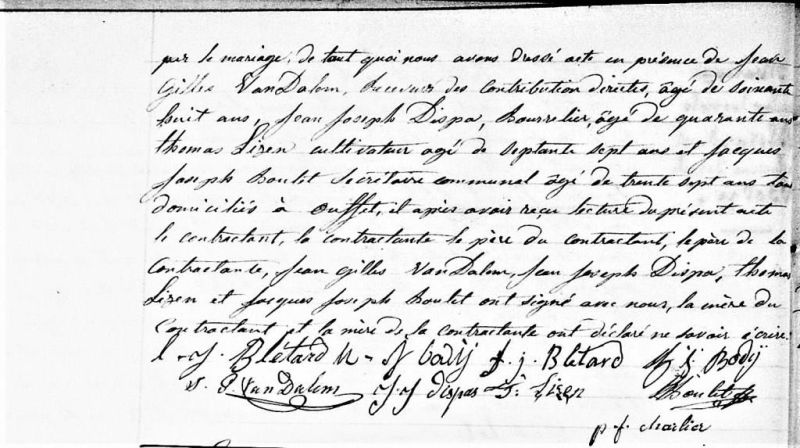 par le mariage; de tout quoi nous avons dressé acte en présence de Jean
Gilles VanDalem, Receveur des Contribution directes, âgé de soixante
huit ans, Jean Joseph Dispa, Bourrelier, âgé de quarante ans
thomas Lizen cultivateur agé de septante sept ans et Jacques
Joseph Boulet Secrétaire communal âgé de trente sept ans tous
domiciliés à Ouffet, et après avoir reçu lecture du présent acte
le contractant, la contractante le père du contractant, le père de la
contractante, Jean Gilles VanDalem, Jean Joseph Dispa, thomas
Lizen et Jacques Joseph Boulet ont signé avec nous, la mère du
Contractant et la mère de la contractante ont déclaré ne savoir écrire.
l-J. Blétard M-N body f. j. Blétard Body
VanDalem J-J dispas T: Lizen JBoulet
p f. charlier